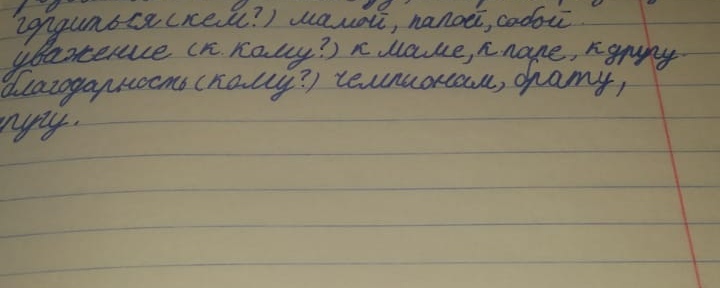 гордиться (кем?) мамой, папой, собой
уважение (к кому?) к маме, к папе, к другу.
благодарность (кому?) чемпионам, брату,
ругу.